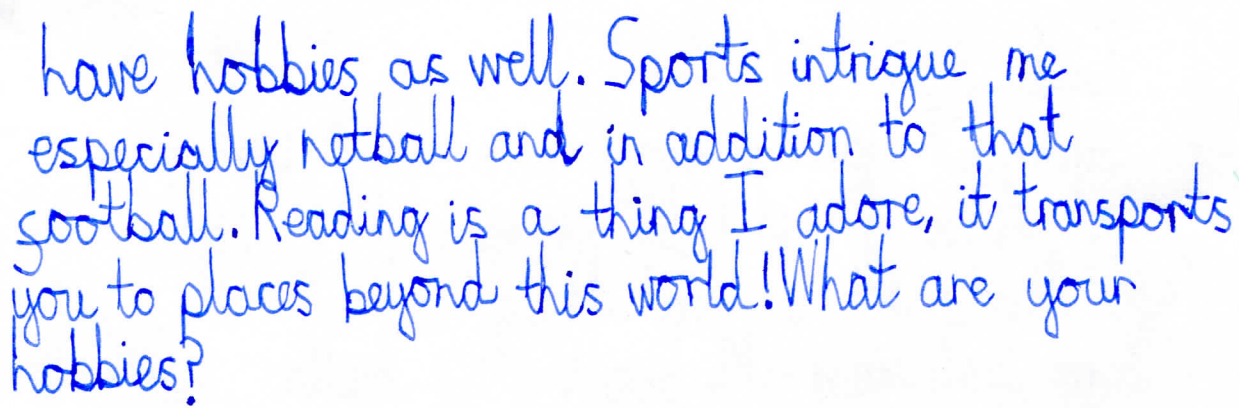 have hobbies as well. Sports intrigue me
especially netball and in addition to that
football. Reading is a thing I adore, it transports
you to places beyond this world! What are your
hobbies?